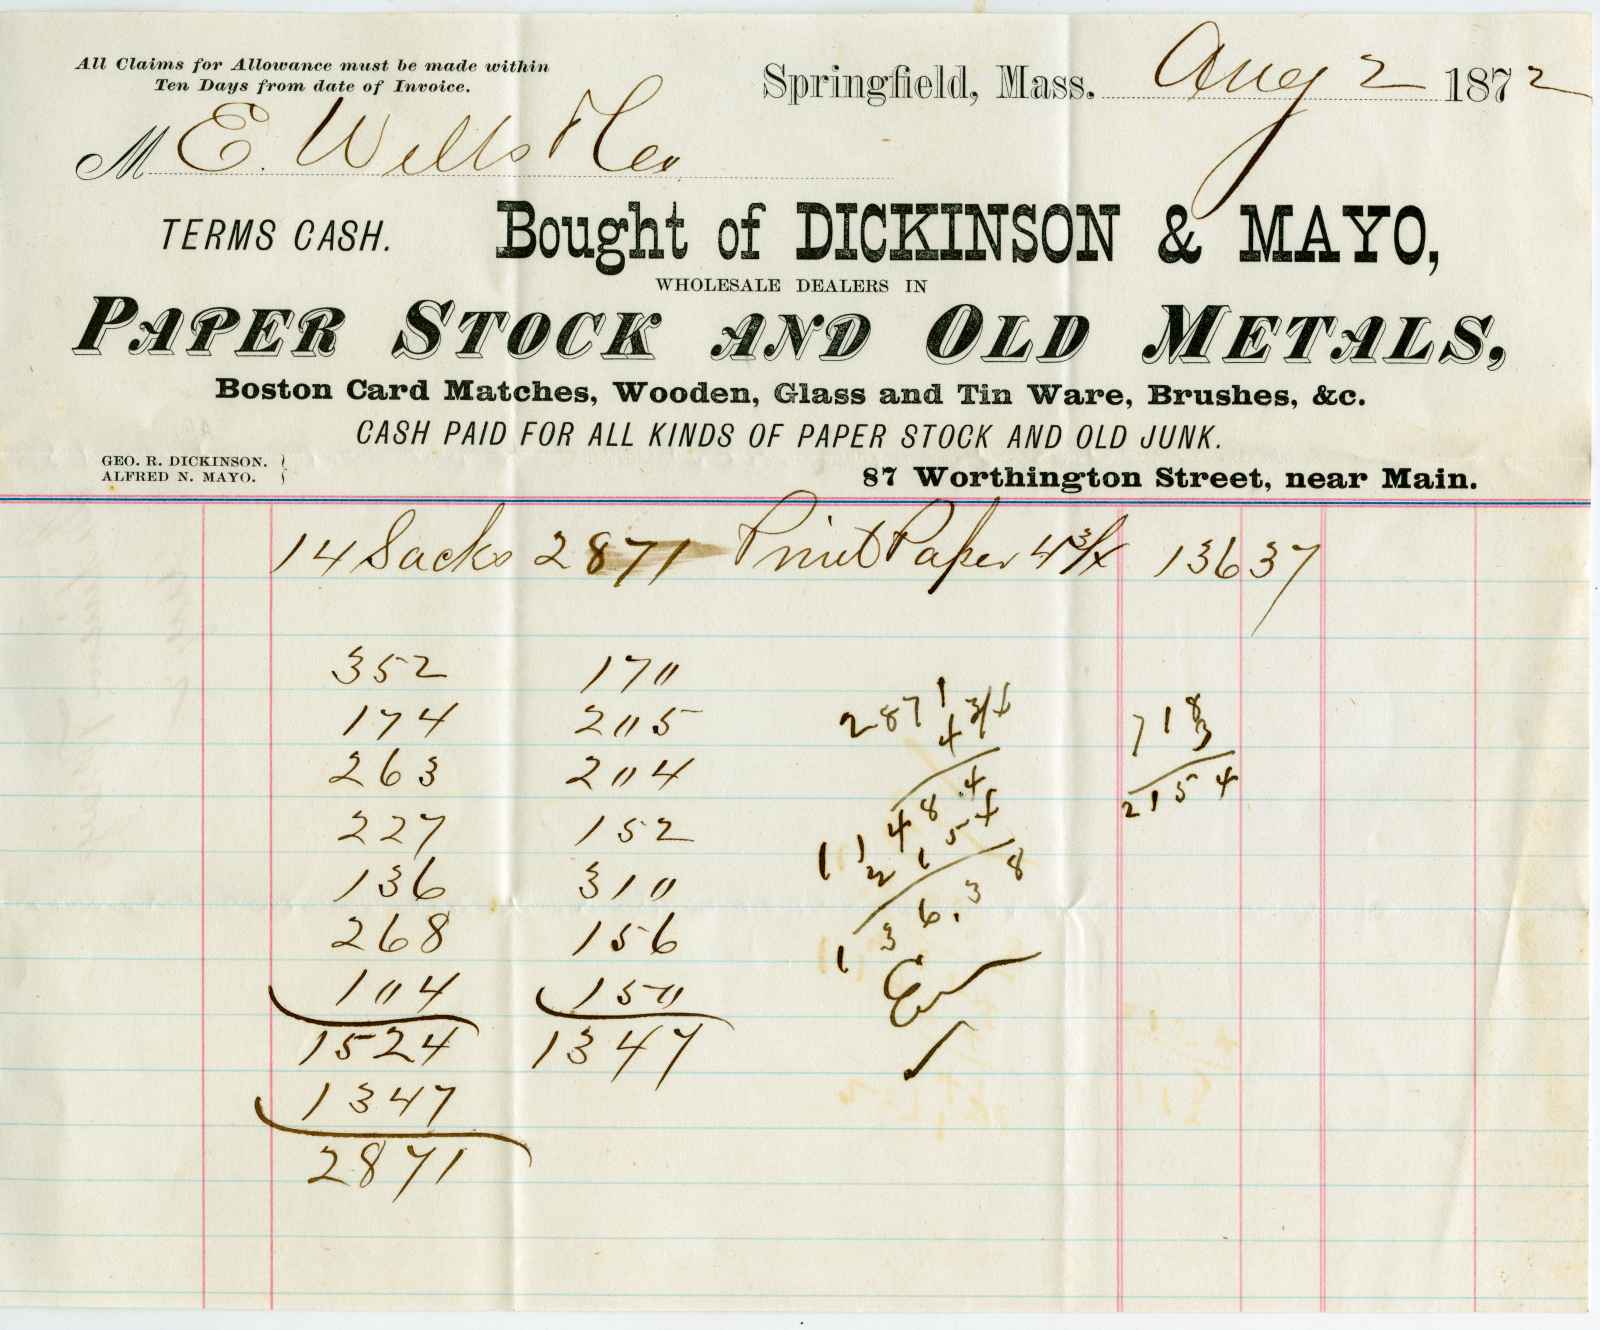 All Claims for Allowance must be made within
Ten Days from date of Invoice.
Springfield, Mass. Aug 2 1872
M E. Wells & Co
TERMS CASH.
Bought of DICKINSON & MAYO,
WHOLESALE DEALERS IN
PAPER STOCK AND OLD METALS,
Boston Card Matches, Wooden, Glass and Tin Ware, Brushes, &c.
CASH PAID FOR ALL KINDS OF PAPER STOCK AND OLD JUNK.
GEO. R. DICKINSON.
ALFRED N. MAYO.
87 Worthington Street, near Main.
14 Sacks 2871 Print Paper 4 3/4 136 37
352 170
174 205
263 204
227 152
136 310
268 156
104 150
1524 1347
1347
2871
2871
4 3/4
11484
2154
136.38
718
3
2154